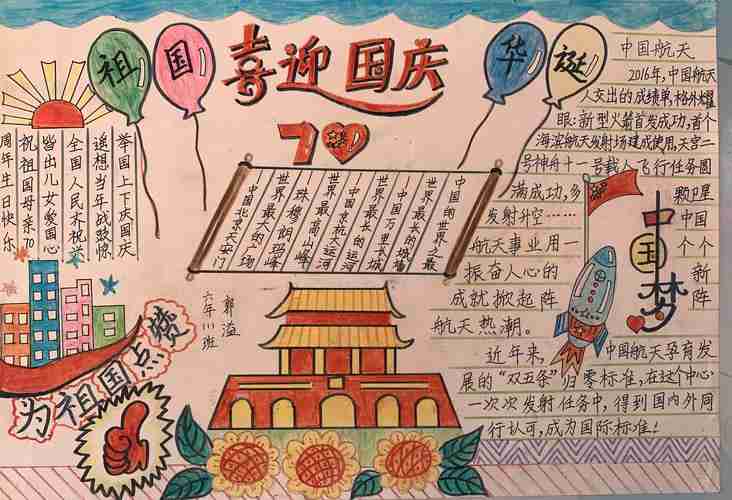 祖国
喜迎国庆
华诞
70
举国上下庆国庆
遥想当年战鼓惊
全国人民文祝送
皆出儿女爱国心
祝祖国母亲70
周年生日快乐
中国的世界之最
世界最长的城墙
—中国万里长城
世界最长的运河
—中国京杭大运河
世界最高山峰
—珠穆朗玛峰
世界最大的广场
—中国北京天安门
郭溢
六年(1)班
为祖国点赞
中国航天
2016年,中国航天
人交出的成绩单,格外耀
眼:新型火箭首发成功,首个
海滨航天发射场建成使用,天宫二
号神舟十一号载人飞行任务圆
满成功,多颗卫星
发射升空……中国
航天事业用一个个
振奋人心的新
成就掀起阵阵
航天热潮。
近年来,中国航天孕育发
展的“双五条”归零标准,在这个中心
一次次发射任务中,得到国内外同
行认可,成为国际标准!
中国梦